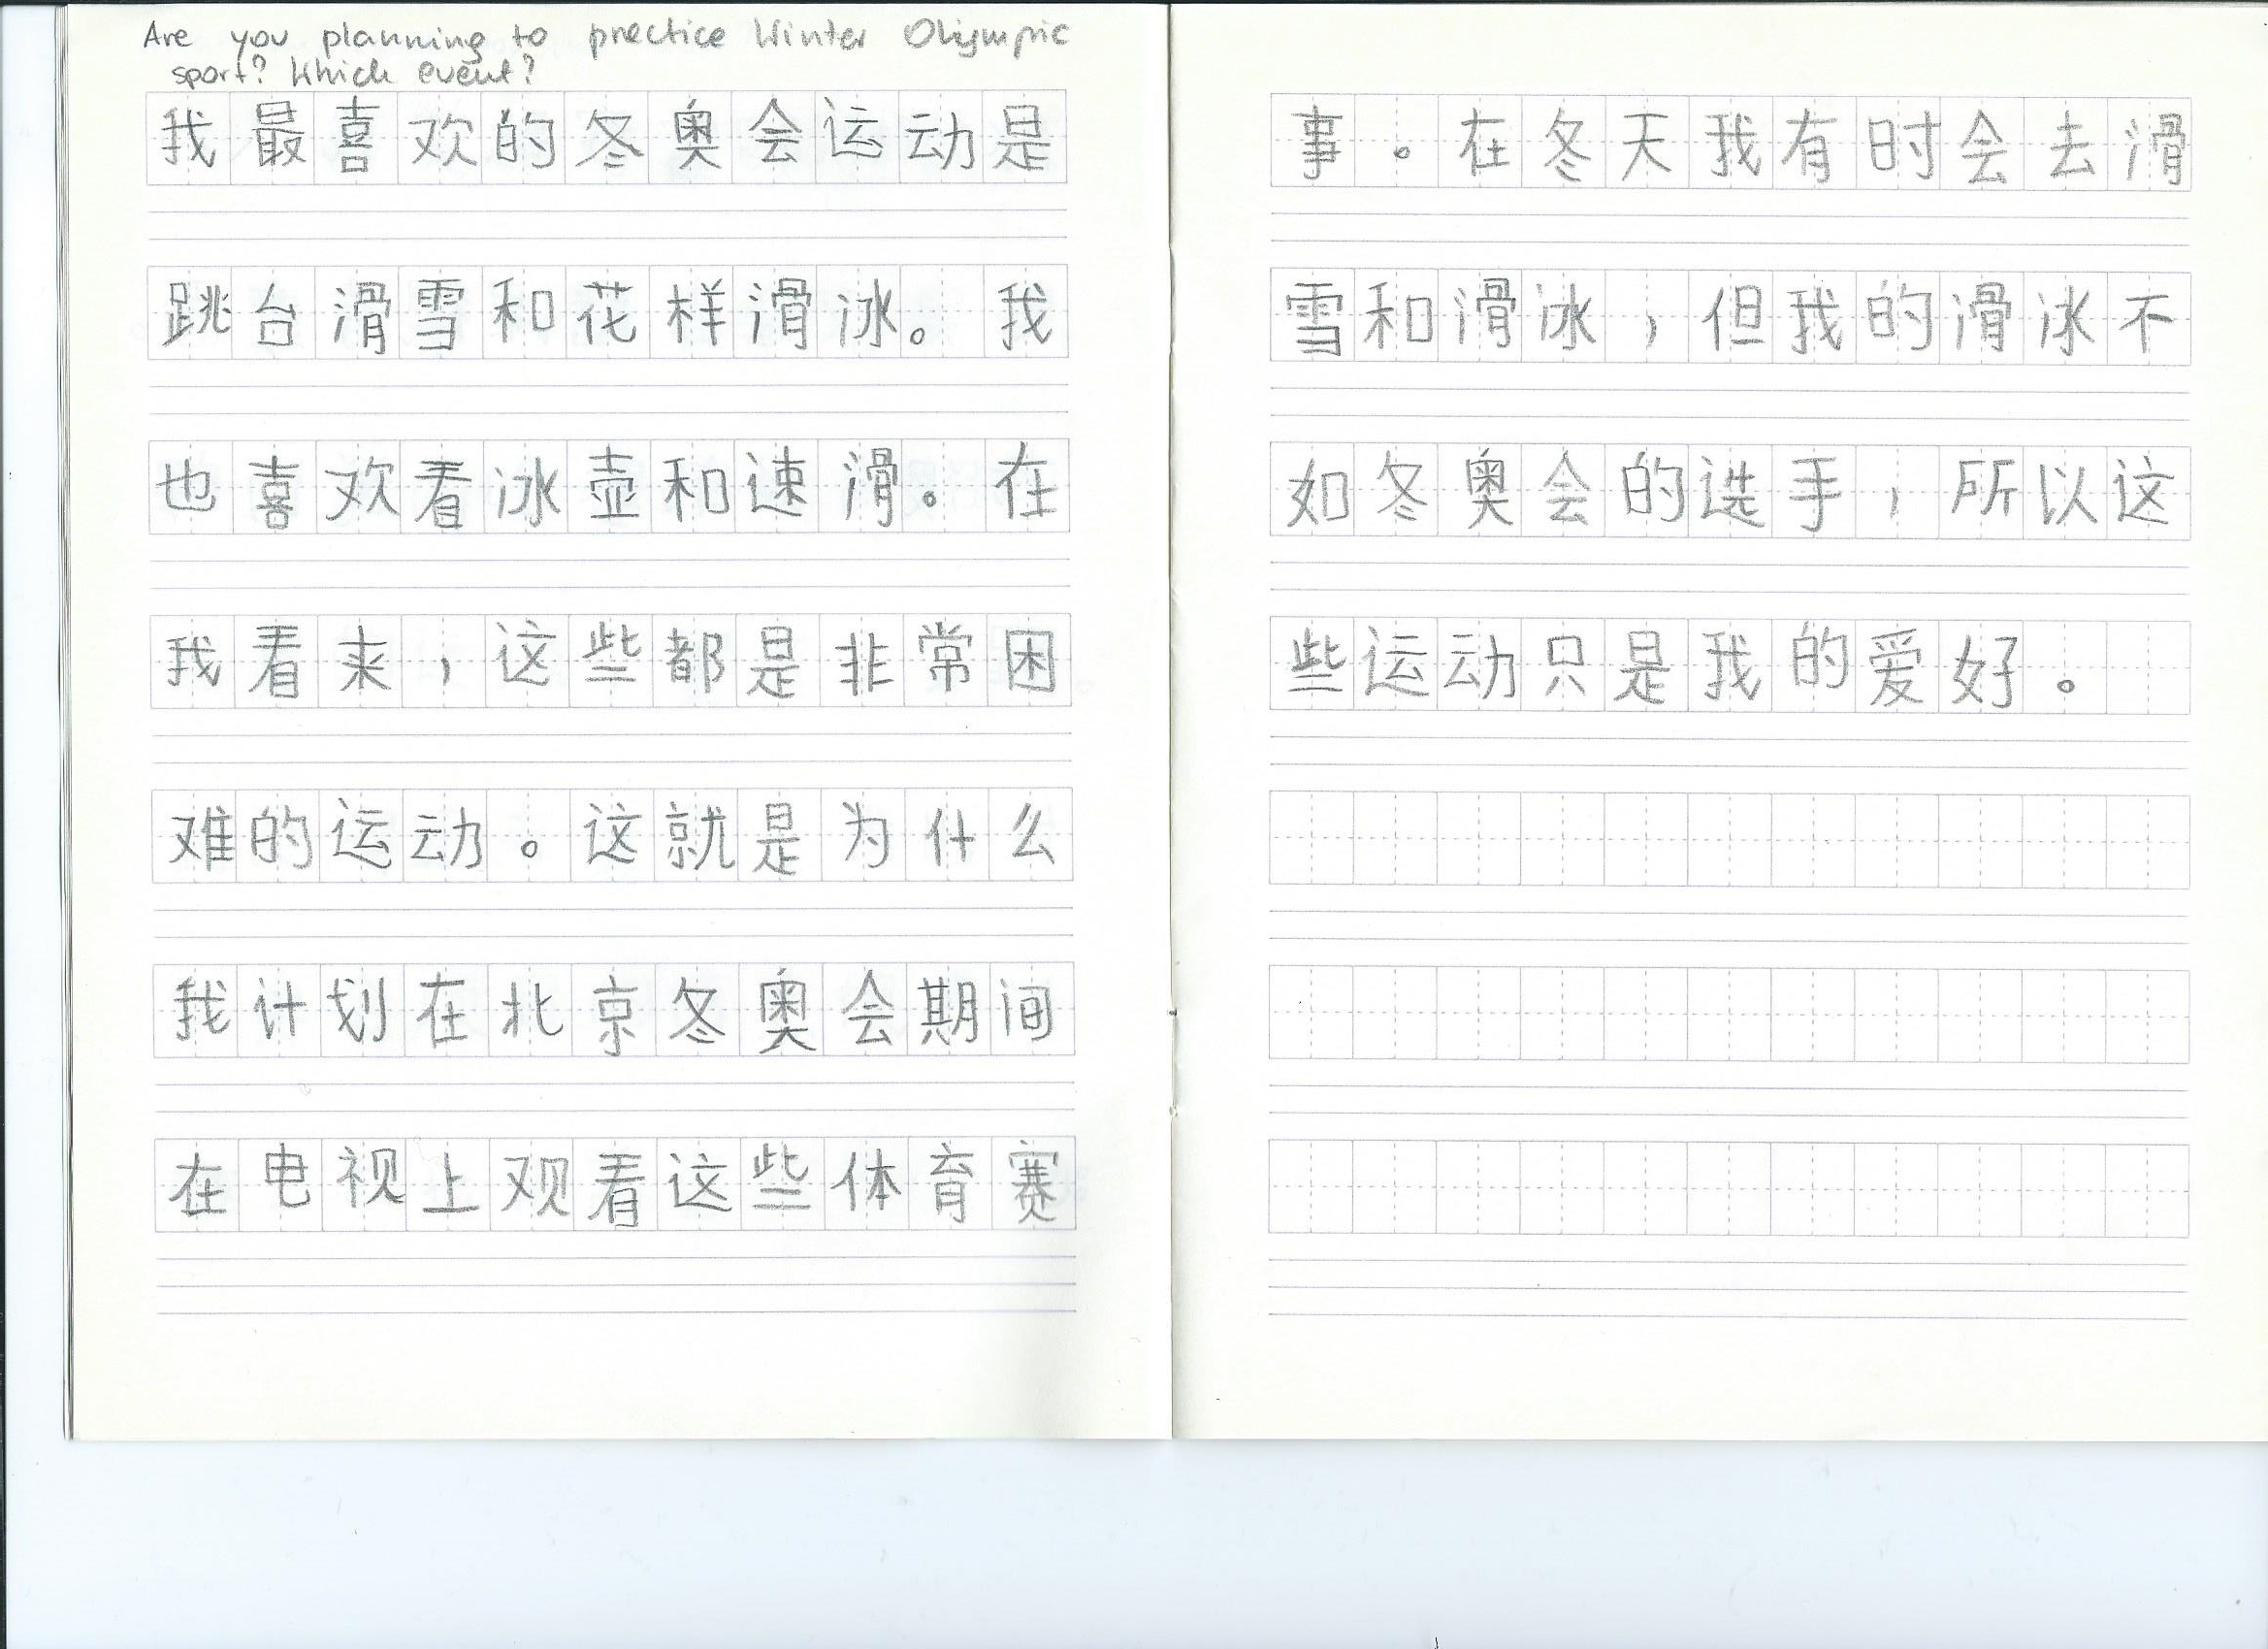 Are you planning to practice Winter Olympic
sport? Which event?
我最喜欢的冬奥会运动是
跳台滑雪和花样滑冰。我
也喜欢看冰壶和速滑。在
我看来，这些都是非常困
难的运动。这就是为什么
我计划在北京冬奥会期间
在电视上观看这些体育赛
事。在冬天我有时会去滑
雪和滑冰，但我的滑冰不
如冬奥会的选手，所以这
些运动只是我的爱好。